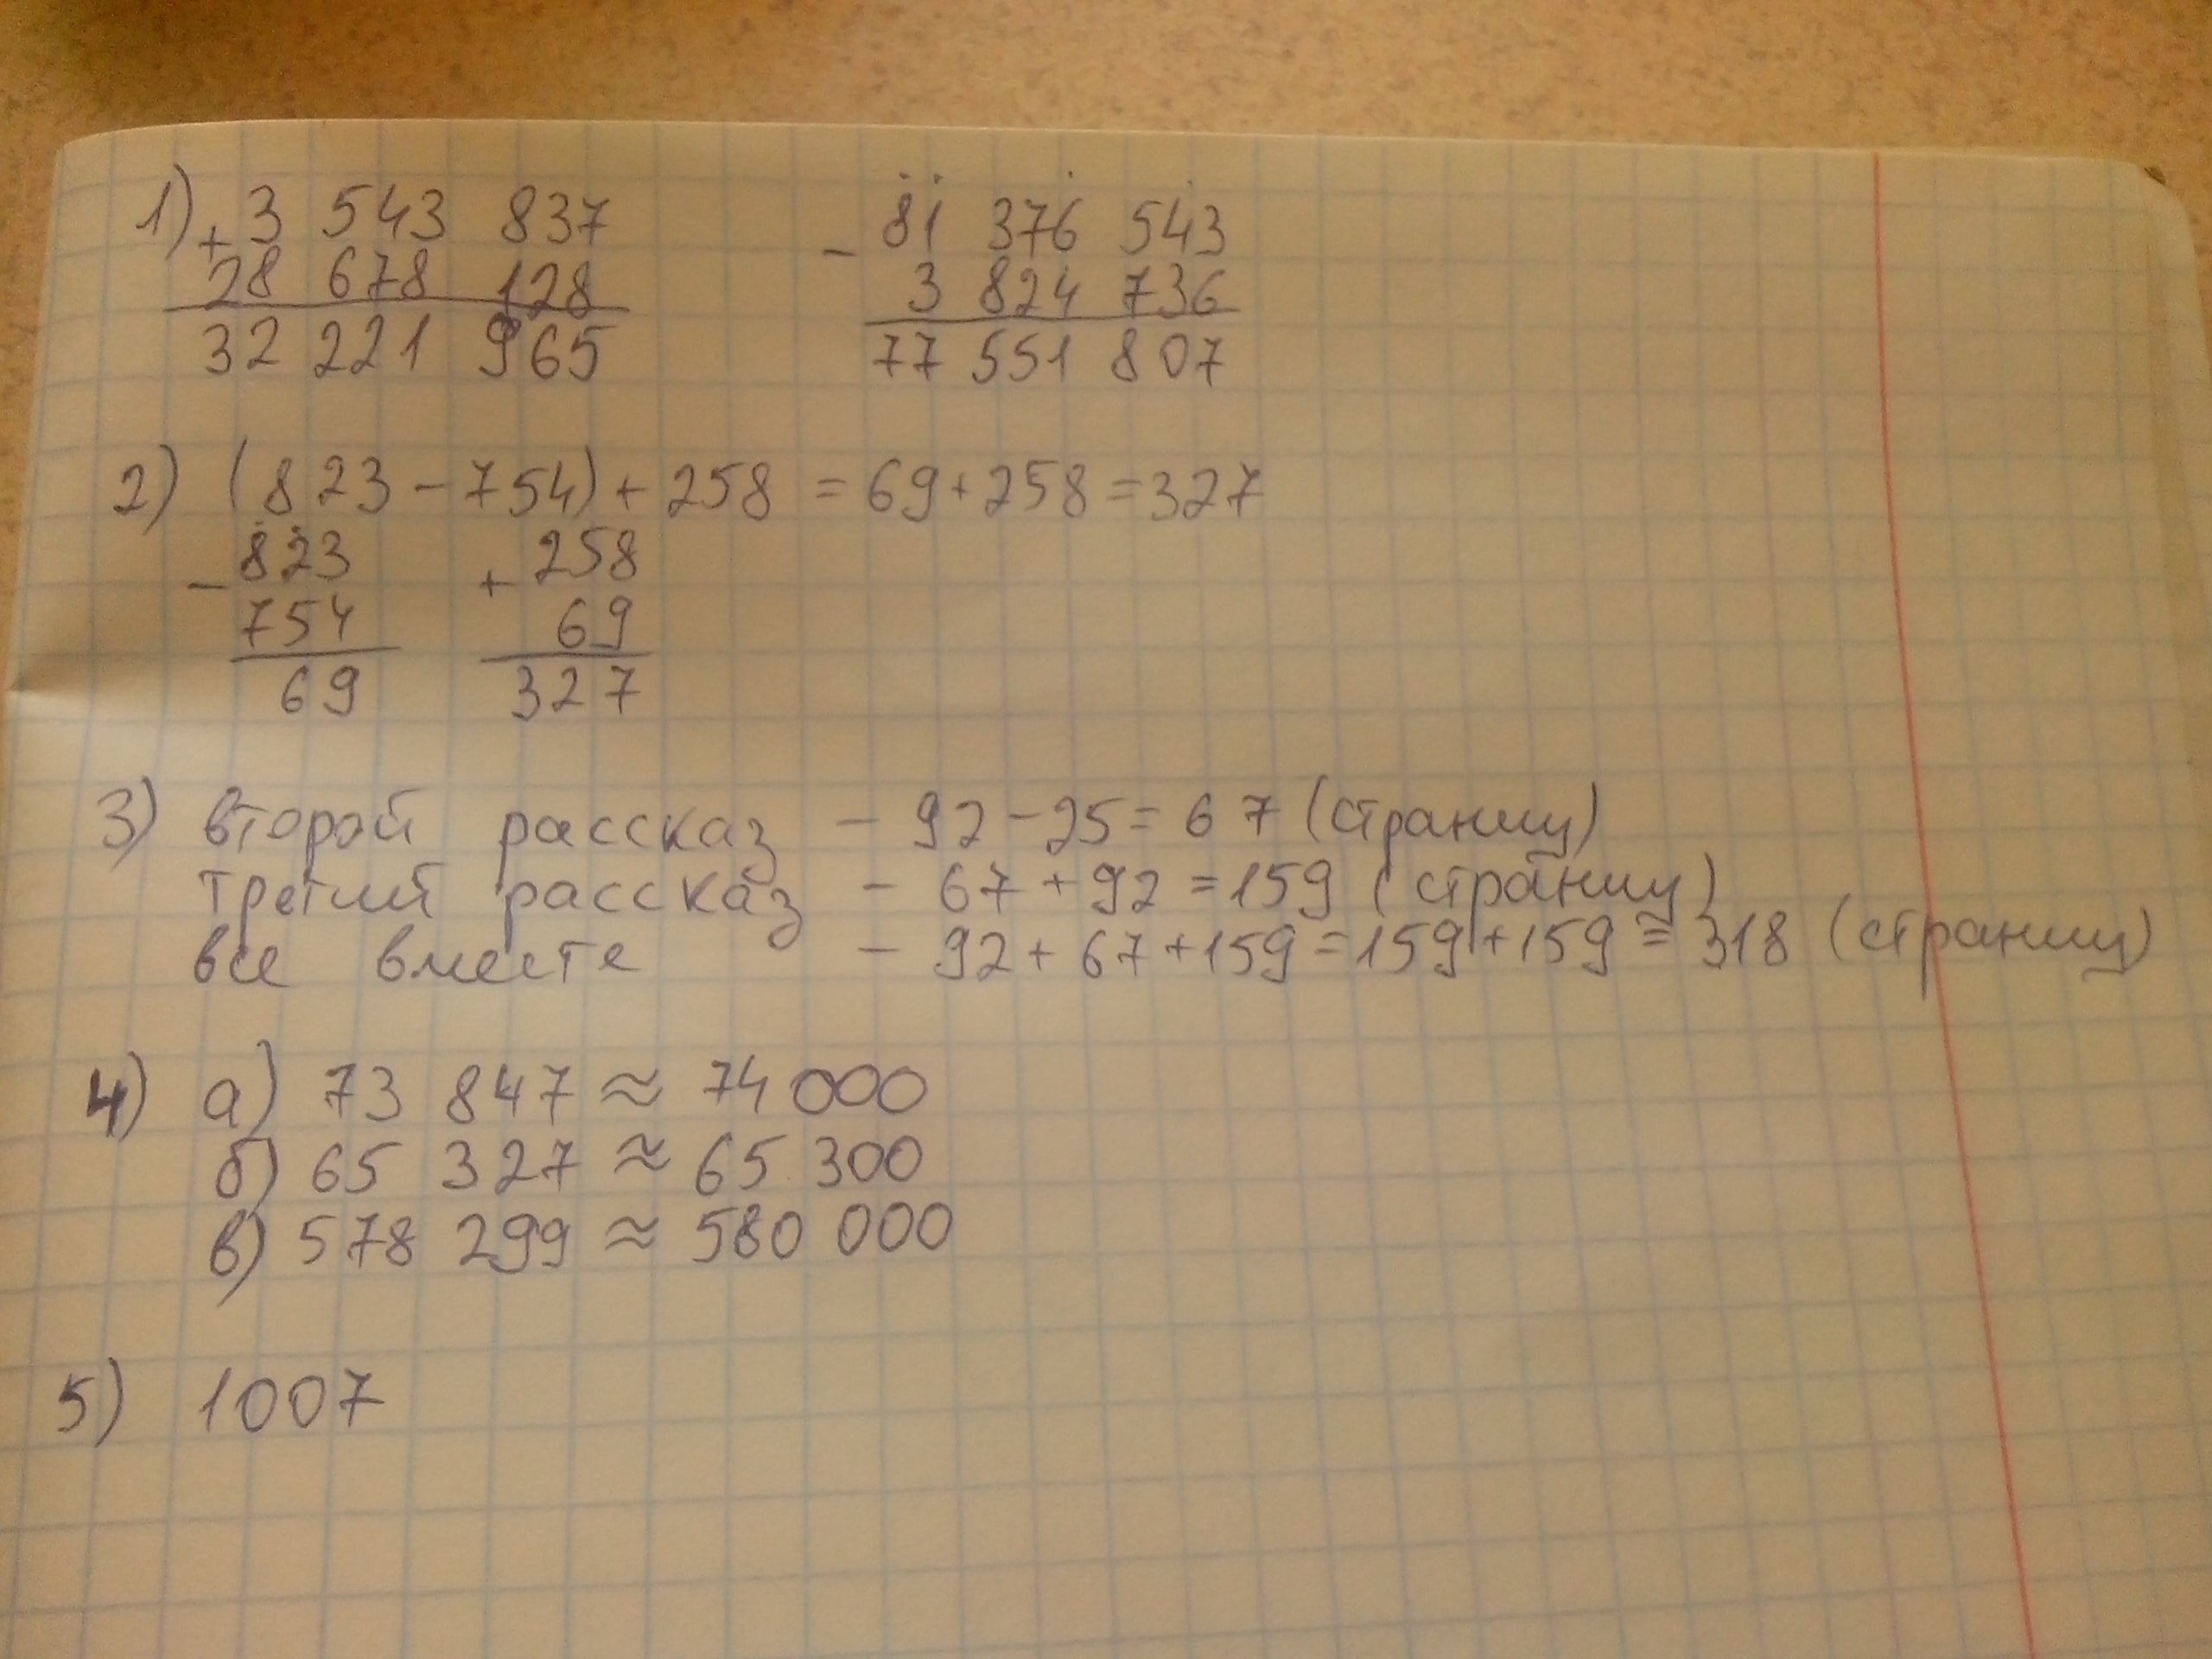 1) + 3 543 837 - 81 376 543
28 678 128 3 824 736
32 221 965 77 551 807
2) (823 - 754) + 258 = 69 + 258 = 327
- 823 + 258
754 69
69 327
3) второй рассказ - 92 - 25 = 67 (страниц)
третий рассказ - 67 + 92 = 159 (страниц)
все вместе - 92 + 67 + 159 = 159 + 159 = 318 (страниц)
4) а) 73 847 ≈ 74 000
б) 65 327 ≈ 65 300
в) 578 299 ≈ 580 000
5) 1007